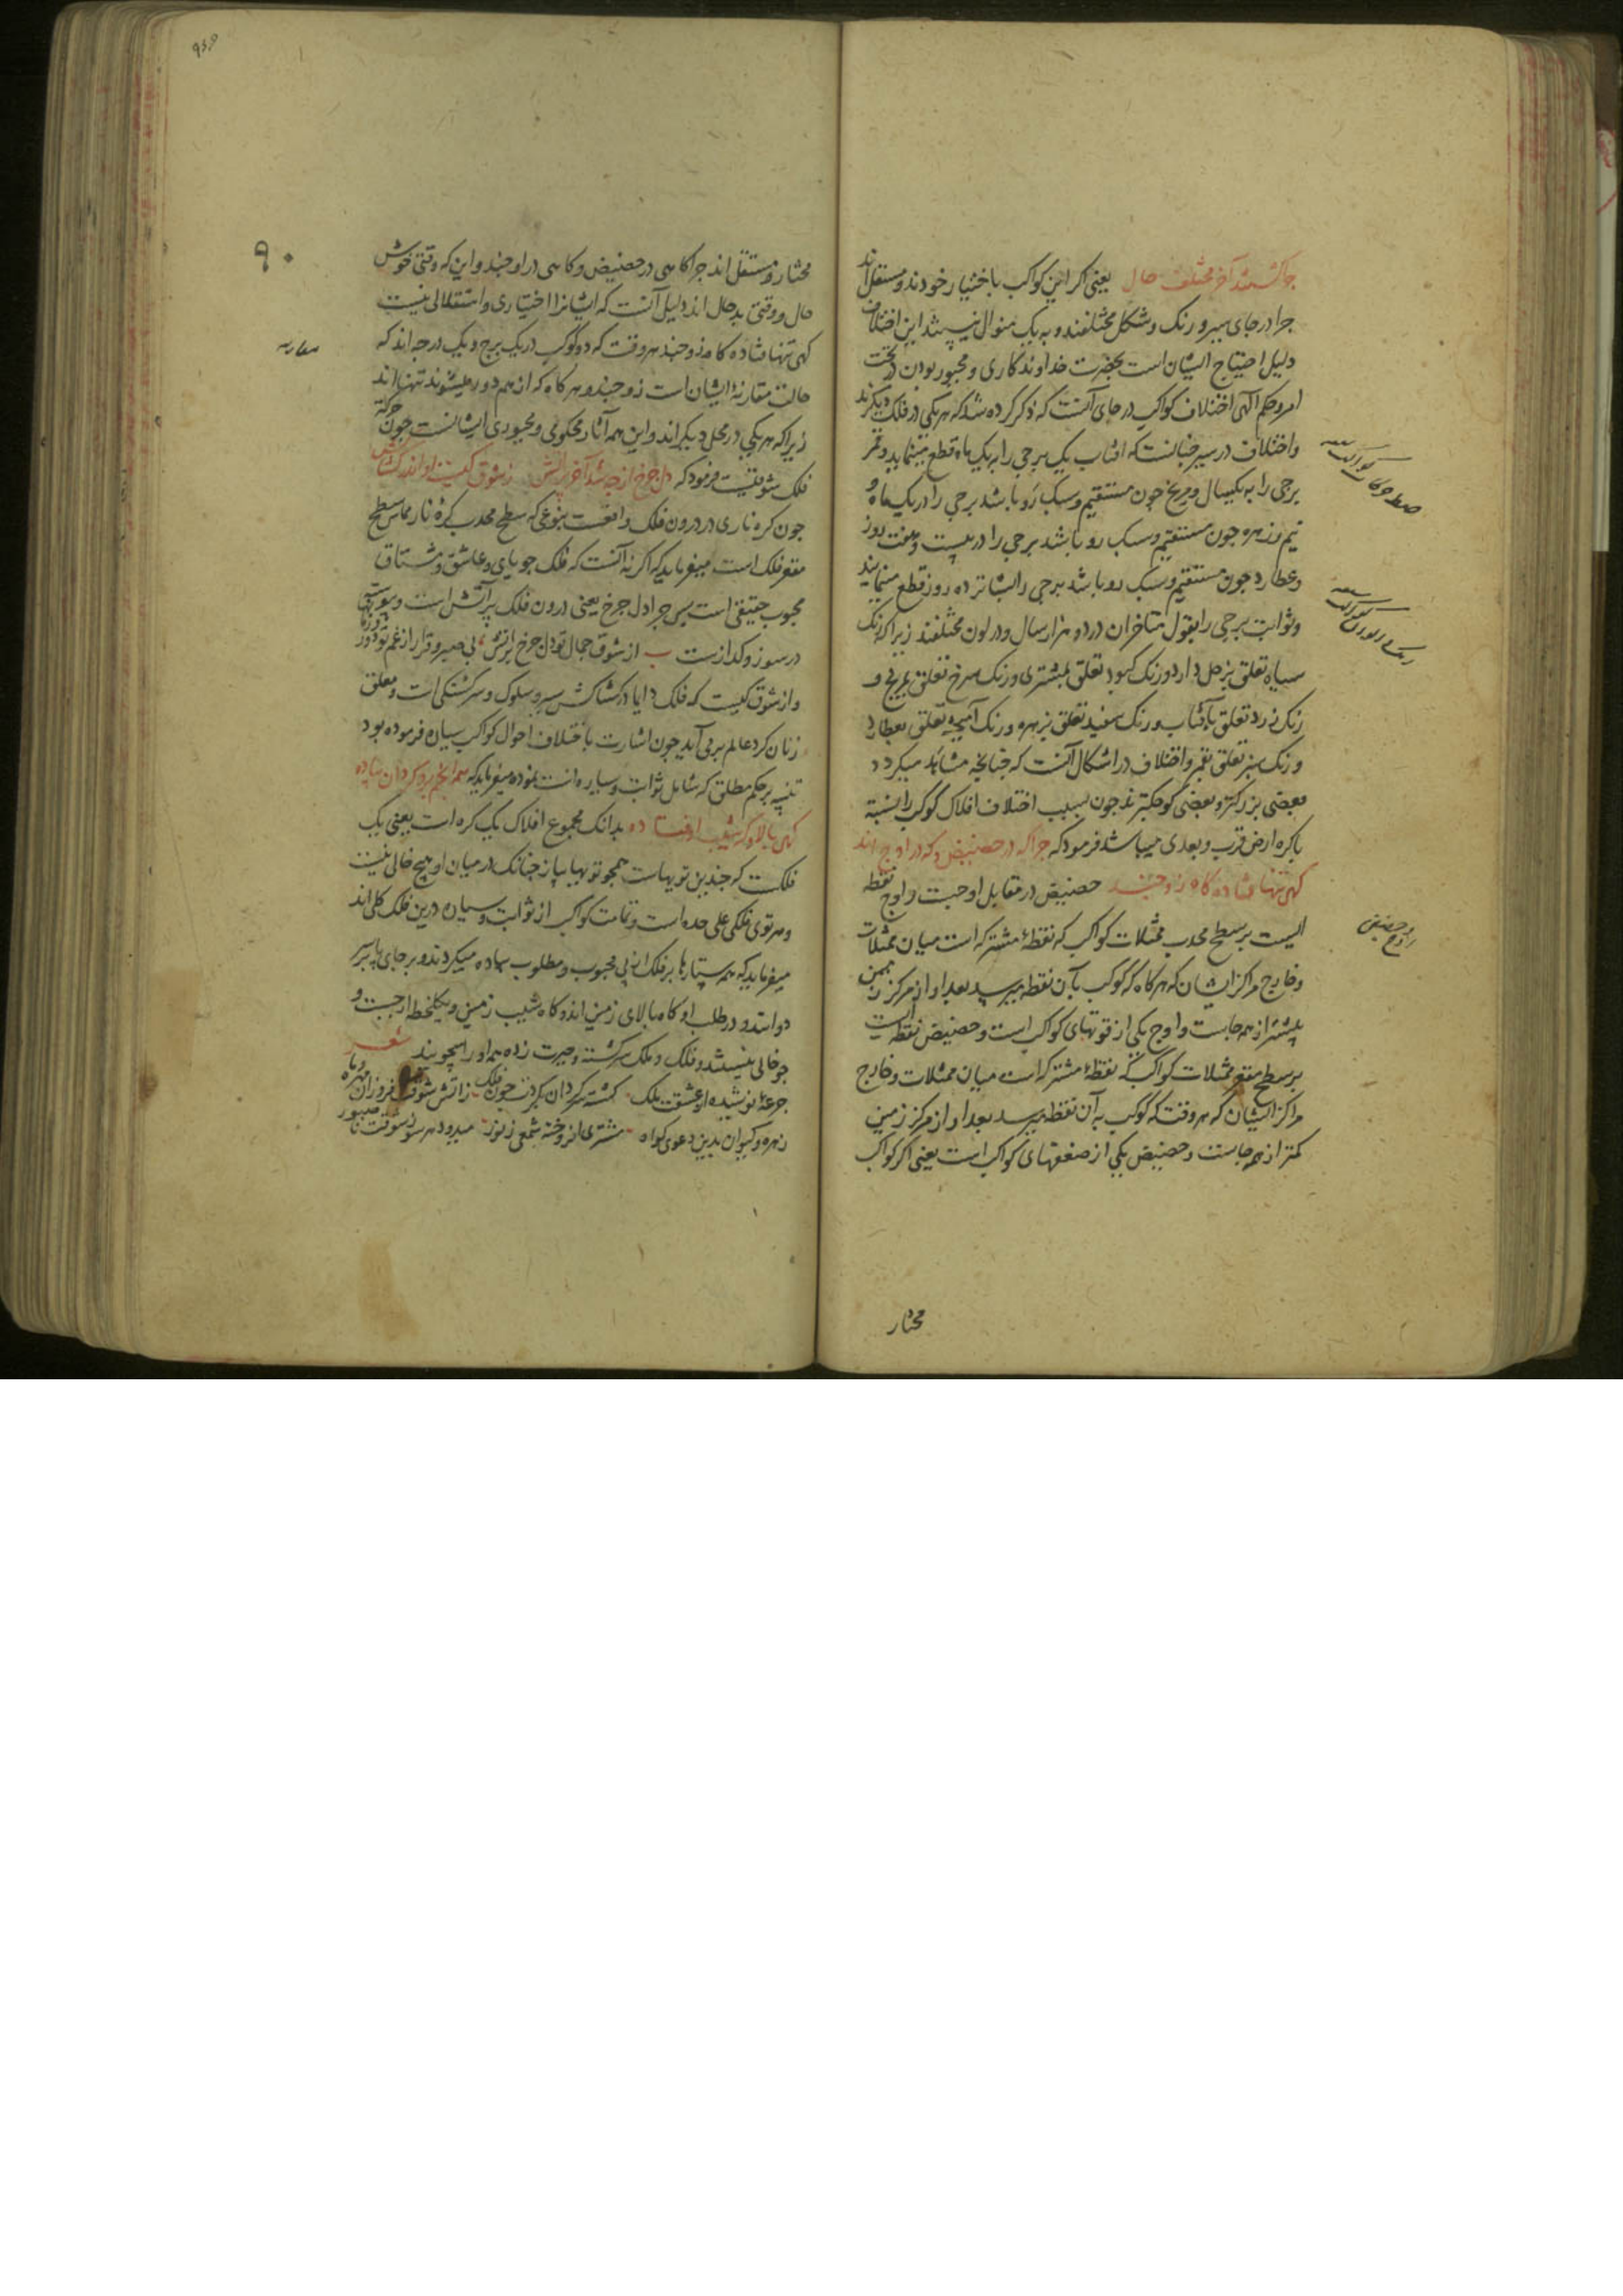 چرا گشتند آخر مختلف حال یعنی اگر این کواکب باختیار خودند و مستقل اند
چرا در جای و سیر و رنک و شکل مختلفند و به یک منوال نیستند این اختلاف
دلیل احتیاج ایشان است بحضرت خداوند کاری و مجبور بودن در تحت
امر و حکم آلهی اختلاف کواکب در جای آنست که ذکر کرده شد که هر یکی در فلک دیکرند
و اختلاف در سیر چنانست که افتاب یک برجی را به یک ماه قطع مینماید و قمر
برجی را به یکسال و مریخ چون مستقیم و سبک رو باشد برجی را در یک ماه و
نیم و زهره چون مستقیم و سبک رو باشد برجی را در بیست و هفت روز
و عطارد چون مستقیم و سبک رو باشد برجی را بشانزده روز قطع مینمایند
و ثوابت برجی را بقول متاخران در دو هزار سال و در لون مختلفند زیرا که رنک
سیاه تعلق بزحل دارد و رنک کبود تعلق بمشتری و رنک سرخ تعلق بمریخ و
رنک زرد تعلق بآفتاب و رنک سفید تعلق بزهره و رنک آمیخته تعلق بعطارد
و رنک سبز تعلق بقمر و اختلاف در اشکال آنست که چنانچه مشاهد میکردد
بعضی بزرکتر و بعضی کوچکترند چون بسبب اختلاف افلاک کوکب را نسبة
باکره ارض قرب و بعدی میباشد فرمود که چرا که در حضیض و که در اوج اند
کهی تنها فتاده کاه زوجند حضیض در مقابل اوجست و اوج نقطه
ایست بر سطح محدب ممثلات کواکب که نقطهٔ مشترکه است میان ممثلات
و خارج مراکز ایشان که هر کاه که کوکب بآن نقطه میرسد بعد او از مرکز زمین
بیشتر از همه جاست و اوج یکی از قوتهای کواکب است و حضیض نقطه ایست
بر سطح مقعر ممثلات کواکب که نقطهٔ مشترکه است میان ممثلات و خارج
مراکز ایشان که هر وقت که کوکب به آن نقطه میرسد بعد او از مرکز زمین
کمتر از همه جاست و حضیض یکی از ضعفهای کواکب است یعنی اکر کواکب
اوج و حضیض
مختار
۹۰
مختار و مستقل اند چرا کاهی در حضیض و کاهی در اوجند و این که وقتی خوش
حال و وقتی بد حال اند دلیل آنست که ایشانرا اختیاری و استقلالی نیست
کهی تنها فتاده کاه زوجند هر وقت که دو کوکب در یک برج و یک درجه اند که
حالت مقارنهٔ ایشان است زوجند و هر کاه که از هم دور میشوند تنها اند
زیرا که هر یکی در محل دیکراند و این همه آثار محکومی و مجبوری ایشانست چون حرکت
فلک شوقیست فرمود که دل چرخ از چه شد آخر پر آتش ز شوق کیست او اندر کشاکش
چون کره ناری در درون فلک واقعست بنوعی که سطح محدب کرهٔ نار مماس سطح
مقعر فلک است میفرماید که اکر نه آنست که فلک جویای و عاشق و مشتاق
محبوب حقیقی است پس چرا دل چرخ یعنی درون فلک پر آتش است و پیوسته
در سوز و کداز ست از شوق جمال تو دل چرخ پر آتش بی صبر و قرار از غم تو دور
و از شوق کیست که فلک دایما در کشاکش سیر و سلوک و سرکشتکی است و معلق
زنان کرد عالم بر می آید چون اشارت باختلاف احوال کواکب سیاره فرموده بود
تنبیه بر حکم مطلق که شامل ثوابت و سیاره است نموده میفرماید که همه انجم برو کردان پیاده
کهی بالا و که شیب اوفتاده بدانک مجموع افلاک یک کره است یعنی یک
فلکست که چندین تویهاست همچو تویهای پیاز چنانک در میان او هیچ خالی نیست
و هر توی فلکی علی حده است و تمامت کواکب از ثوابت و سیاره درین فلک کلی اند
میفرماید که همه ستارها بر فلک از پی محبوب و مطلوب پیاده میکردند و بر جای پا بسر
دوانند و در طلب او کاه بالای زمین اند و کاه شیب زمین و یکلحظه از جست و
جو خالی نیستند و فلک و ملک سرکشته و حیرت زده همه او را میجویند شعر
جرعهٔ نوشیده از عشقت ملک کشته سرکردان بکردت چون فلک ز آتش شوقت فروزان مهر و ماه
زهره و کیوان بدین دعوی کواه مشتری افروخته شمعی ز نور میرود هر سو ز شوقت ناصبور